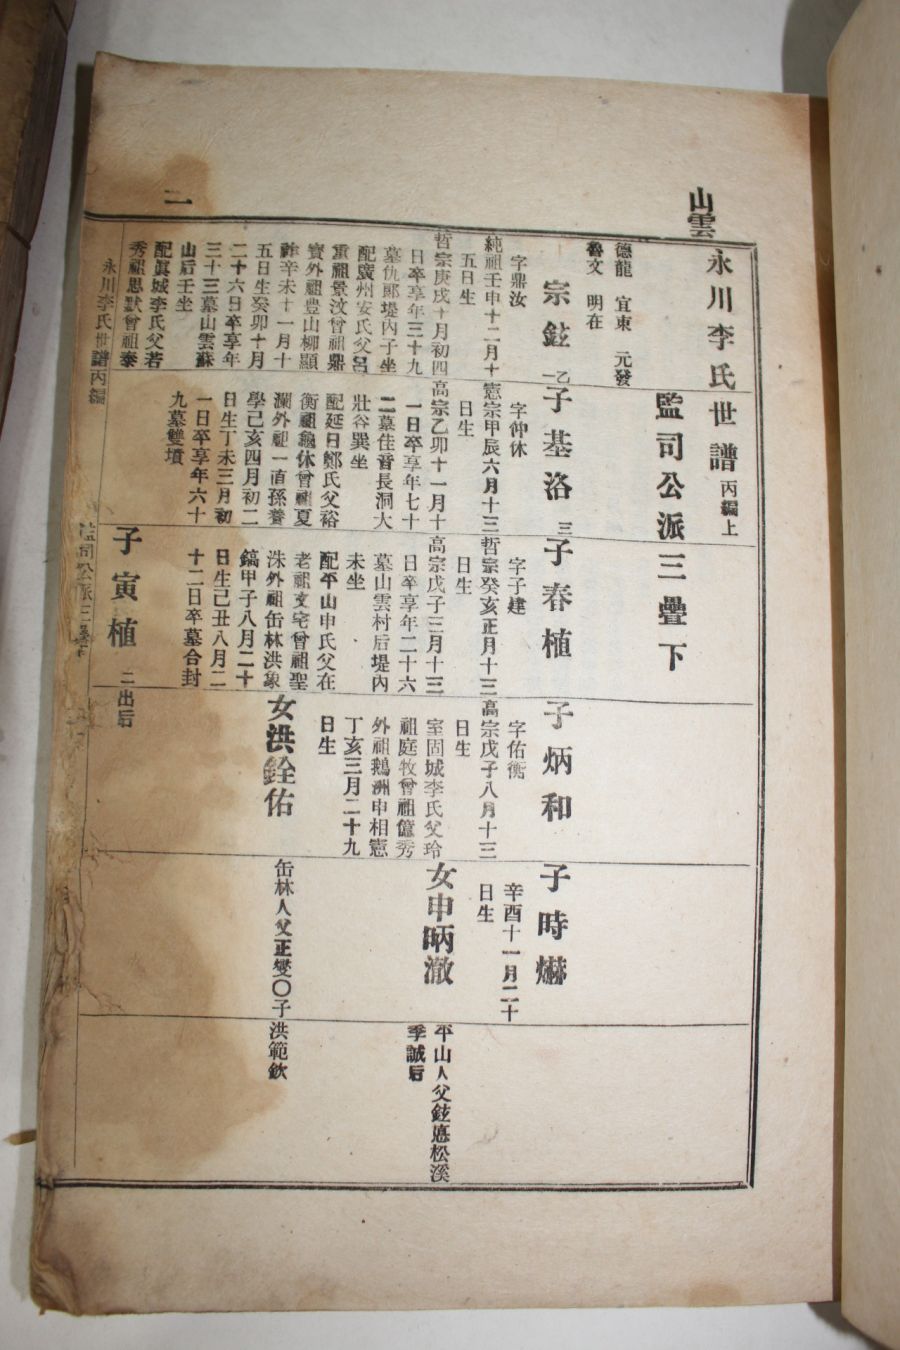 山雲
二
永川李氏世譜 丙編上
監司公派三疊下
德龍 宜東 元發
魯文 明在
宗鉉 乙
字鼎汝
純祖壬申十二月十
五日生
哲宗庚戌十月初四
日卒享年三十九
墓仇郞堤內子坐
配廣州安氏父呂
重祖景汶曾祖鼎
寶外祖豊山柳顯
祚辛未十一月十
五日生癸卯十月
二十六日卒享年
三十三墓山雲蘇
山后壬坐
配眞城李氏父若
秀祖思默曾祖泰
子基洛 三
字仲休
憲宗甲辰六月十三
日生
高宗乙卯十一月十
一日卒享年七十
二墓佳音長洞大
壯谷巽坐
配延日鄭氏父裕
衡祖龜休曾祖夏
瀾外祖一直孫養
學己亥四月初二
日生丁未三月初
一日卒享年六十
九墓雙墳
子春植
字子建
哲宗癸亥正月十三
日生
高宗戊子三月十三
日卒享年二十六
墓山雲村后堤內
未坐
配平山申氏父在
老祖文宅曾祖聖
洙外祖缶林洪象
鎬甲子八月二十
日生己丑八月二
十二日卒墓合封
子寅植 二出后
子炳和
字佑衡
高宗戊子八月十三
日生
室固城李氏父玲
祖庭牧曾祖億秀
外祖鵝洲申相憲
丁亥三月二十九
日生
女洪銓佑
缶林人父正燮〇子洪範欽
子時爀
辛酉十一月二十
日生
女申昞澈
平山人父鉉悳松溪
季誠后
永川李氏世譜丙編
監司公派三疊下